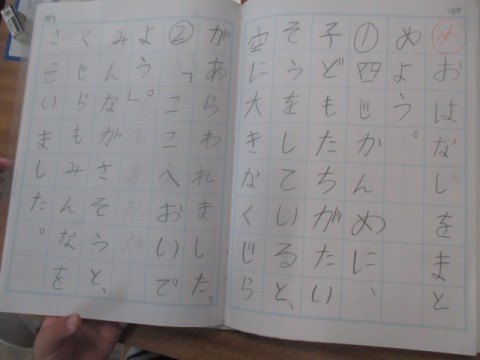 めおはなしをまと
めよう。
①四じかんめに、
子どもたちがたい
そうをしていると、
空に大きなくじら
があらわれました。
②「ここへおいで
よう。」
みんながさそうと、
くじらもみんなを
さそいました。